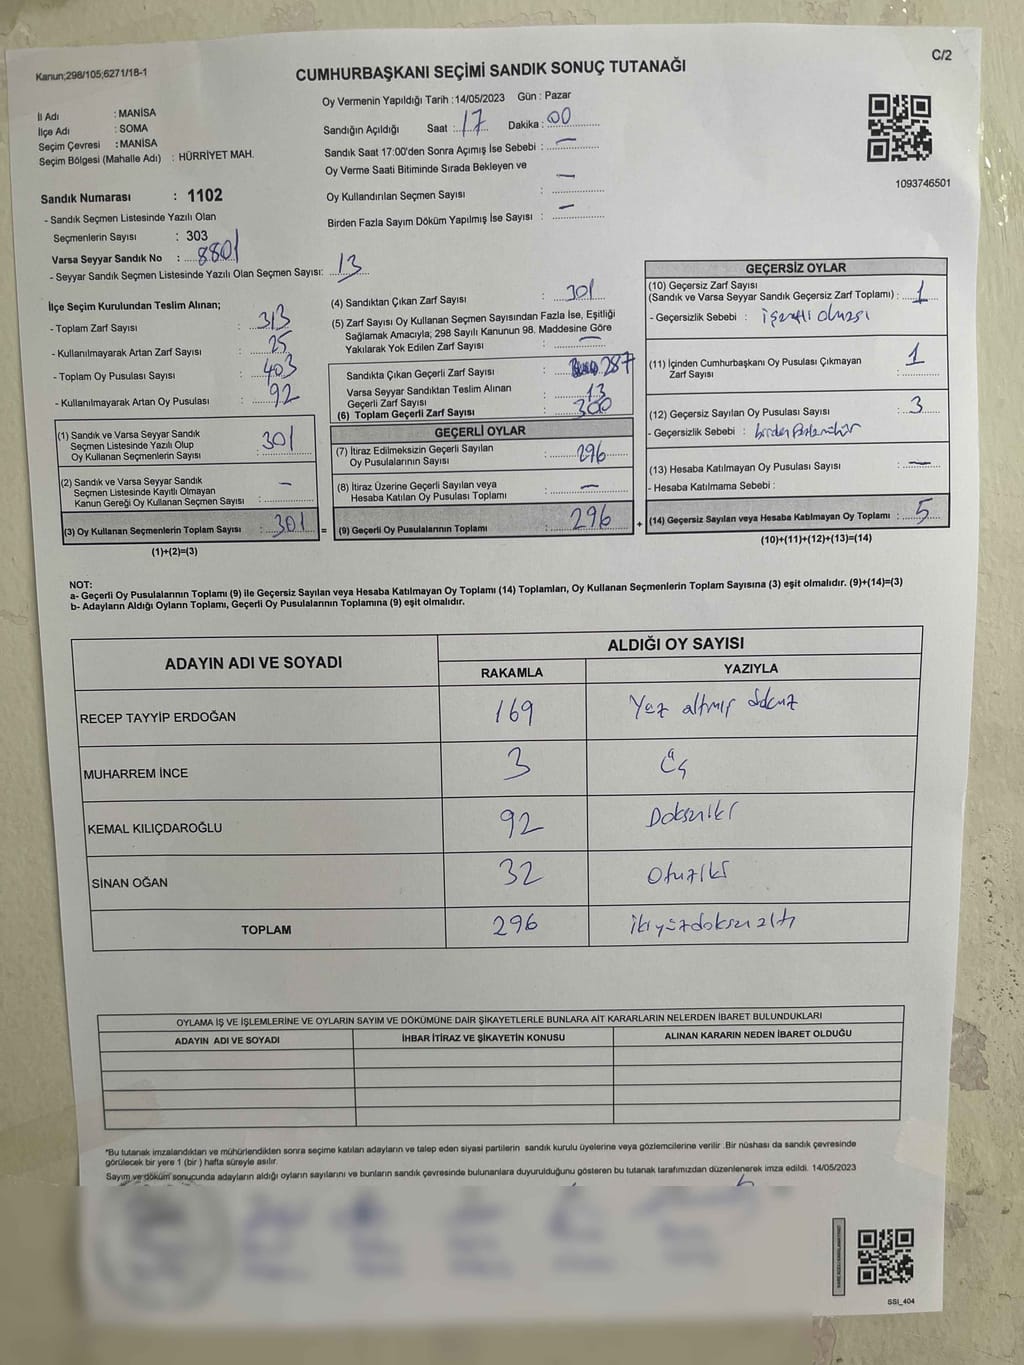 Kanun;298/105;6271/18-1
C/2
CUMHURBAŞKANI SEÇİMİ SANDIK SONUÇ TUTANAĞI
İl Adı : MANİSA
İlçe Adı : SOMA
Seçim Çevresi : MANİSA
Seçim Bölgesi (Mahalle Adı) : HÜRRİYET MAH.
Oy Vermenin Yapıldığı Tarih :14/05/2023 Gün : Pazar
Sandığın Açıldığı Saat : 17 Dakika : 00
Sandık Saat 17:00'den Sonra Açımış İse Sebebi : —
Oy Verme Saati Bitiminde Sırada Bekleyen ve
Oy Kullandırılan Seçmen Sayısı : —
Birden Fazla Sayım Döküm Yapılmış İse Sayısı : —
1093746501
Sandık Numarası : 1102
- Sandık Seçmen Listesinde Yazılı Olan
Seçmenlerin Sayısı : 303
Varsa Seyyar Sandık No : 8801
- Seyyar Sandık Seçmen Listesinde Yazılı Olan Seçmen Sayısı: 13
İlçe Seçim Kurulundan Teslim Alınan;
- Toplam Zarf Sayısı : 313
- Kullanılmayarak Artan Zarf Sayısı : 25
- Toplam Oy Pusulası Sayısı : 403
- Kullanılmayarak Artan Oy Pusulası : 92
(1) Sandık ve Varsa Seyyar Sandık
Seçmen Listesinde Yazılı Olup
Oy Kullanan Seçmenlerin Sayısı : 301
(2) Sandık ve Varsa Seyyar Sandık
Seçmen Listesinde Kayıtlı Olmayan
Kanun Gereği Oy Kullanan Seçmen Sayısı : —
(3) Oy Kullanan Seçmenlerin Toplam Sayısı : 301
(1)+(2)=(3)
(4) Sandıktan Çıkan Zarf Sayısı : 301
(5) Zarf Sayısı Oy Kullanan Seçmen Sayısından Fazla İse, Eşitliği
Sağlamak Amacıyla; 298 Sayılı Kanunun 98. Maddesine Göre
Yakılarak Yok Edilen Zarf Sayısı : —
Sandıkta Çıkan Geçerli Zarf Sayısı : 287
Varsa Seyyar Sandıktan Teslim Alınan
Geçerli Zarf Sayısı : 13
(6) Toplam Geçerli Zarf Sayısı : 300
GEÇERLİ OYLAR
(7) İtiraz Edilmeksizin Geçerli Sayılan
Oy Pusulalarının Sayısı : 296
(8) İtiraz Üzerine Geçerli Sayılan veya
Hesaba Katılan Oy Pusulası Toplamı : —
= (9) Geçerli Oy Pusulalarının Toplamı : 296
GEÇERSİZ OYLAR
(10) Geçersiz Zarf Sayısı
(Sandık ve Varsa Seyyar Sandık Geçersiz Zarf Toplamı) : 1
- Geçersizlik Sebebi : işaretli olması
(11) İçinden Cumhurbaşkanı Oy Pusulası Çıkmayan
Zarf Sayısı : 1
(12) Geçersiz Sayılan Oy Pusulası Sayısı : 3
- Geçersizlik Sebebi :
(13) Hesaba Katılmayan Oy Pusulası Sayısı : —
- Hesaba Katılmama Sebebi :
+ (14) Geçersiz Sayılan veya Hesaba Katılmayan Oy Toplamı : 5
(10)+(11)+(12)+(13)=(14)
NOT:
a- Geçerli Oy Pusulalarının Toplamı (9) ile Geçersiz Sayılan veya Hesaba Katılmayan Oy Toplamı (14) Toplamları, Oy Kullanan Seçmenlerin Toplam Sayısına (3) eşit olmalıdır. (9)+(14)=(3)
b- Adayların Aldığı Oyların Toplamı, Geçerli Oy Pusulalarının Toplamına (9) eşit olmalıdır.
ADAYIN ADI VE SOYADI
ALDIĞI OY SAYISI
RAKAMLA YAZIYLA
RECEP TAYYİP ERDOĞAN 169 Yüz altmış dokuz
MUHARREM İNCE 3 Üç
KEMAL KILIÇDAROĞLU 92 Doksaniki
SİNAN OĞAN 32 Otuziki
TOPLAM 296 ikiyüzdoksanaltı
OYLAMA İŞ VE İŞLEMLERİNE VE OYLARIN SAYIM VE DÖKÜMÜNE DAİR ŞİKAYETLERLE BUNLARA AİT KARARLARIN NELERDEN İBARET BULUNDUKLARI
ADAYIN ADI VE SOYADI İHBAR İTİRAZ VE ŞİKAYETİN KONUSU ALINAN KARARIN NEDEN İBARET OLDUĞU
"Bu tutanak imzalandıktan ve mühürlendikten sonra seçime katılan adayların ve talep eden siyasi partilerin sandık kurulu üyelerine veya gözlemcilerine verilir .Bir nüshası da sandık çevresinde
görülecek bir yere 1 (bir ) hafta süreyle asılır.
Sayım ve döküm sonucunda adayların aldığı oyların sayılarını ve bunların sandık çevresinde bulunanlara duyurulduğunu gösteren bu tutanak tarafımızdan düzenlenerek imza edildi. 14/05/2023
SSI_404